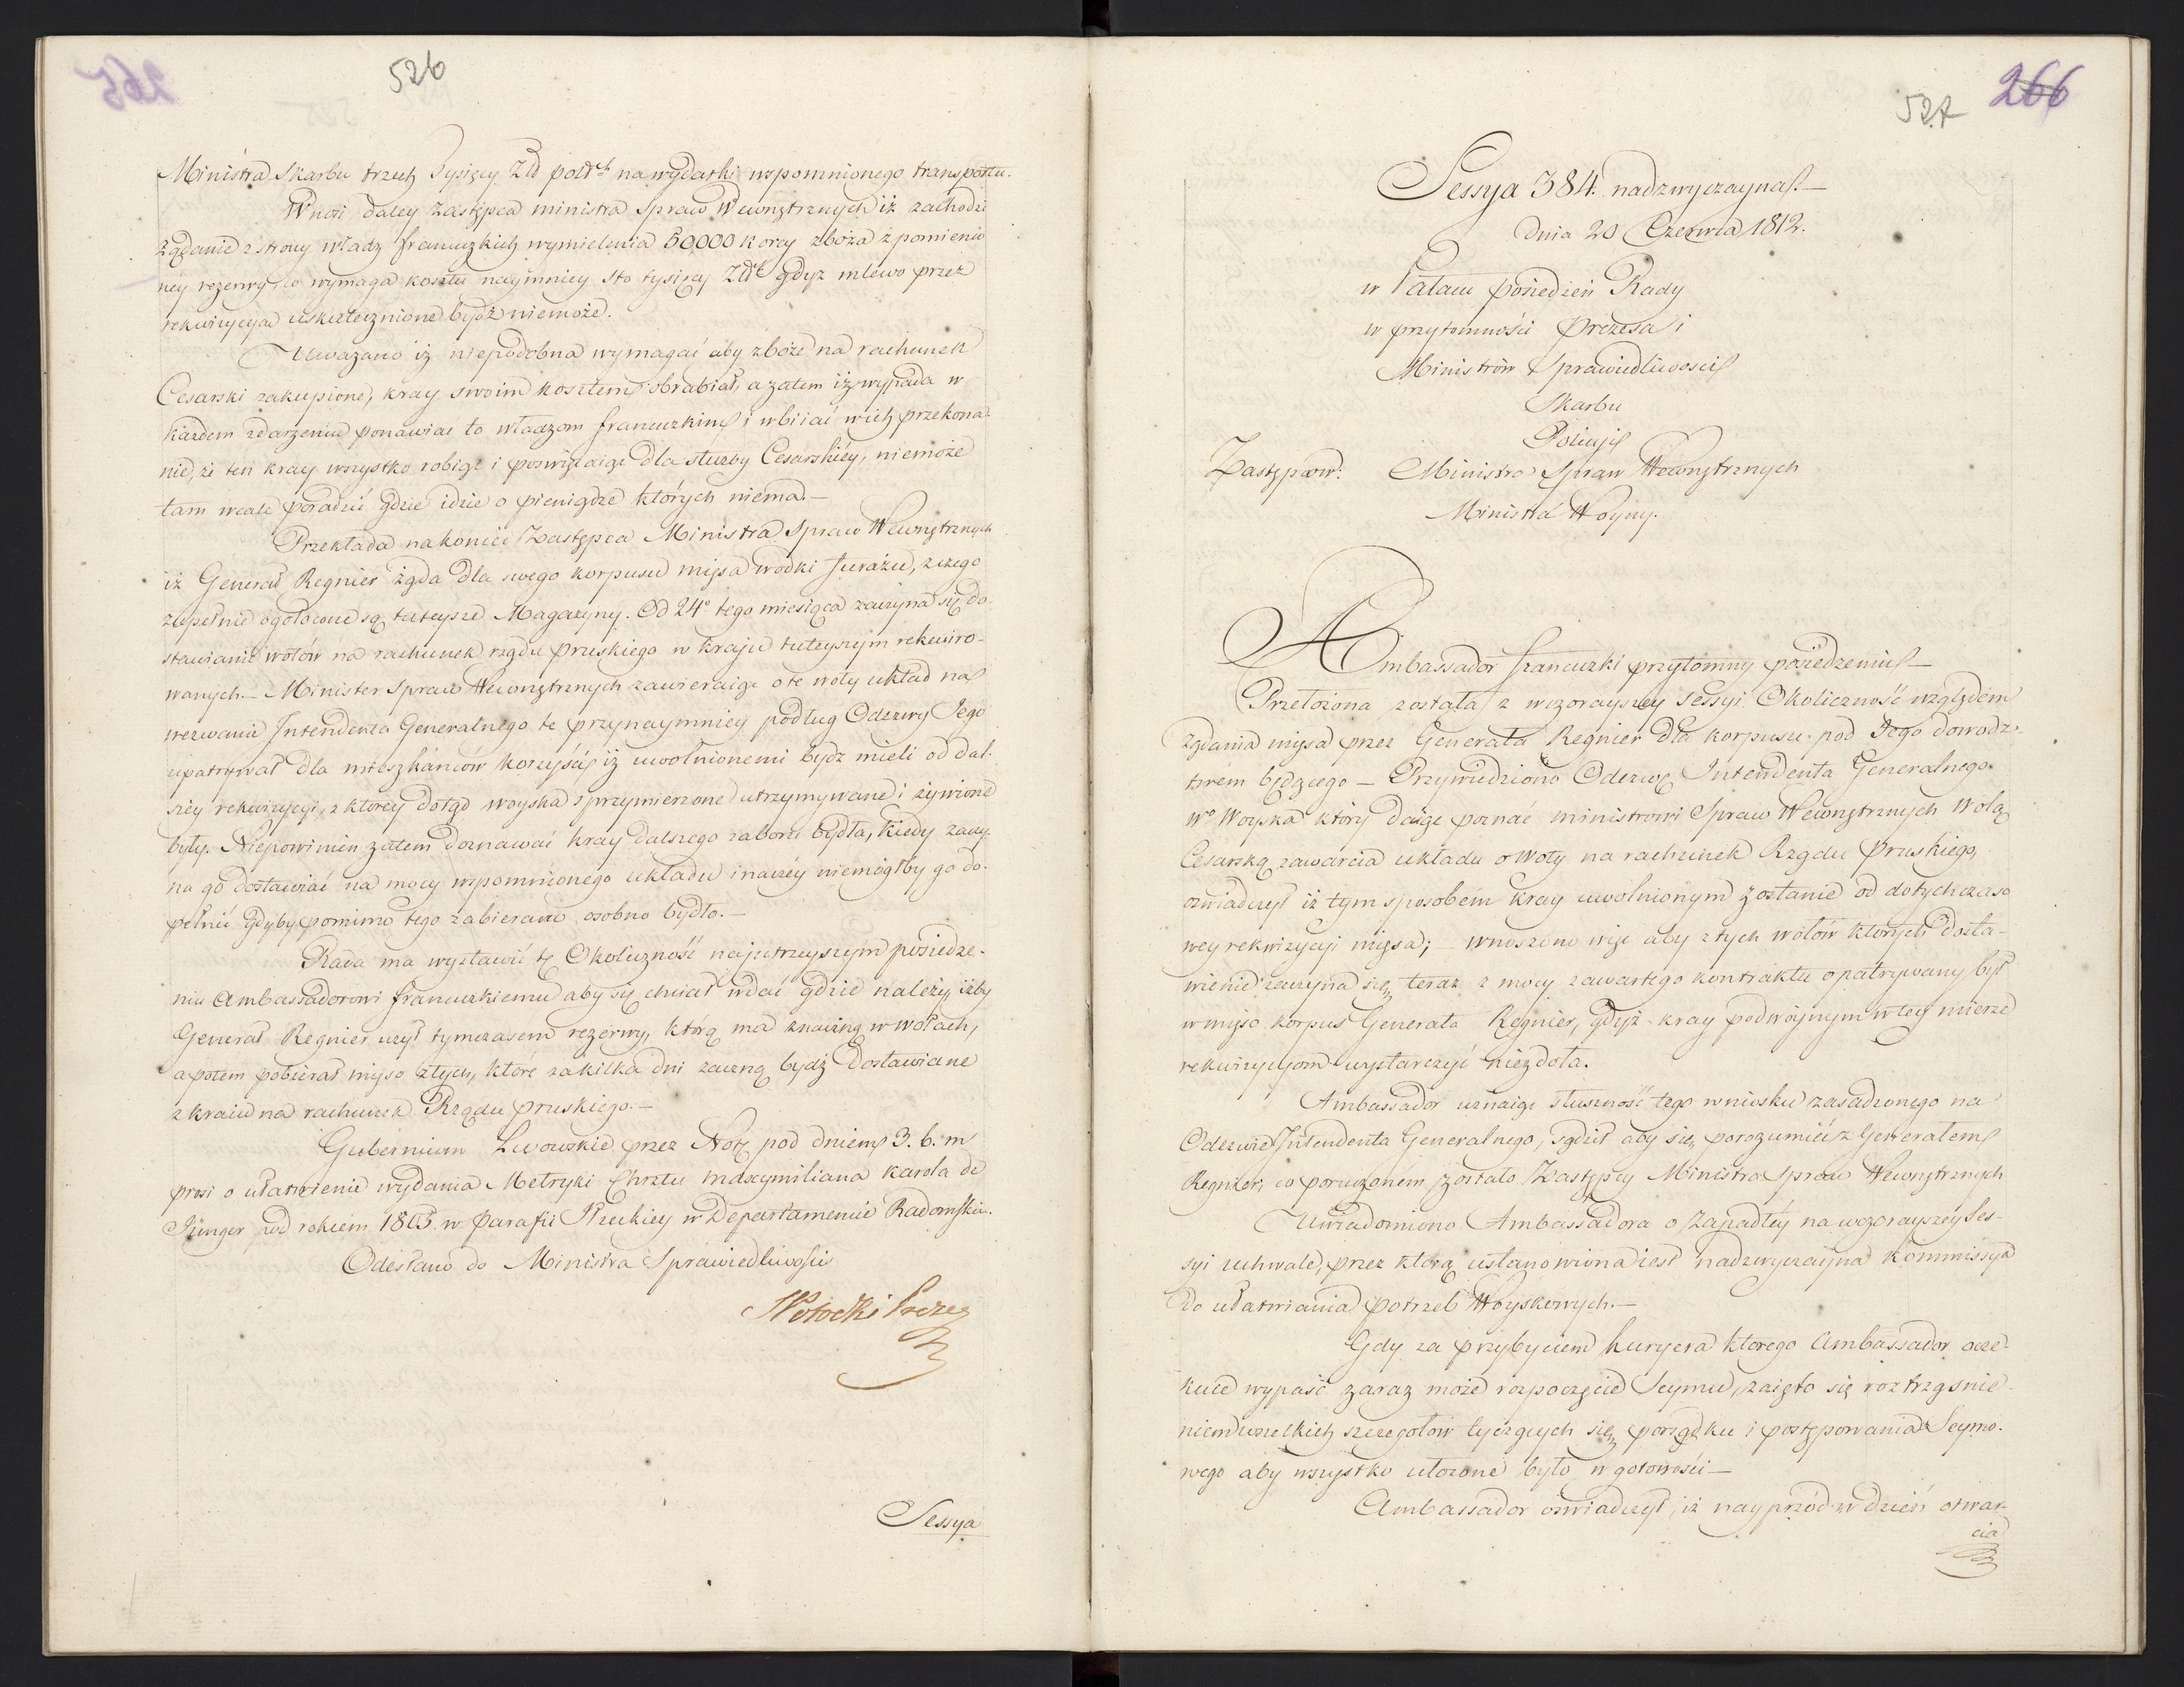 526
Ministra Skarbu trzech Tysięcy Złł polsch na wydatki wspomnionego transportu.
Wnosi daley Zastępca ministra Spraw Wewnętrznych iż zachodzi
żądanie z strony władz francuzkich wymielenia 50000 korcy zboża z pomienio
ney rezerwy, co wymaga kosztu naymniey sto tysięcy Złł gdyż mlewo przez
rekwizycyą uskutecznione bydź niemoże.
Uważano iż niepodobna wymagać aby zboże na rachunek
Cesarski zakupione, kray swoim kosztem obrabiał, a zatem iż wypada w
każdem zdarzeniu ponawiać to władzom francuzkim i wbiiać w ich przekona-
nie, że ten kray wszystko robiąc i poświęcaiąc dla służby Cesarskiéy, niemoże
tam wcale poradzić gdzie idzie o pieniądze których niema.—
Przekłada nakoniec Zastępca Ministra Spraw Wewnętrznych
iż Generał Regnier żąda dla swego korpusu mięsa wodki furażu, z czego
zupełnie ogołocone są tuteysze Magazyny. Od 24o tego miesiąca zaczyna się do-
stawianie wołów na rachunek rządu pruskiego w kraju tuteyszym rekwiro-
wanych.— Minister Spraw Wewnętrznych zawieraiąc o te woły układ na
wezwanie Intendenta Generalnego te przynaymniey podług Odezwy Jego
upatrywał dla mieszkańców korzyść iż uwolnionemi bydź mieli od dal-
szey rekwizycyi, z którey dotąd woyska sprzymierzone utrzymywane i żywione
były. Niepowinien zatem doznawać kray dalszego zaboru bydła, kiedy zaczy-
na go dostawiać na mocy wspomnionego układu inaczéy niemógłby go do-
pełnić gdyby pomimo tego zabierano osobno bydło.—
Rada ma wystawić tę Okoliczność najutrzyszym posiedze-
niu Ambassadorowi francuzkiemu aby się chciał udać gdzie należy, iżby
Generał Regnier użył tymczasem rezerwy, którą ma znaczną w wołach,
a potem pobierał mięso z tych, które za kilka dni zaczną bydź dostawiane
z kraiu na rachunek Rządu pruskiego.—
Gubernium Lwowskie przez Notę pod dniem 3. b. m
prosi o ułatwienie wydania Metryki Chrztu Maxymiliana Karola de
Jünger pod rokiem 1803. w Parafii w Departamencie Radomskim.
Odesłano do Ministra Sprawiedliwości
SPotocki Prezes
Sessya
266
527
Sessya 384. nadzwyczayna.—
Dnia 20 Czerwca 1812.
w Pałacu posiedzeń Rady
w przytomności Prezesa i
Ministrów Sprawiedliwości
Skarbu
Policyi
Zastępców: Ministra Spraw Wewnętrznych
Ministra Woyny.
Ambassador francuzki przytomny posiedzeniu.—
Przełożona została z wczorayszey Sessyi Okoliczność względem
żądania mięsa przez Generała Regnier dla korpusu pod Jego dowódz-
twem będącego — Przywiedziono Odezwę Intendenta Generalnego
Wo Woyska który daiąc poznać ministrowi Spraw Wewnętrznych Wolą
Cesarską zawarcia układu o Woły na rachunek Rządu pruskiego,
oświadczył iż tym sposobem kray uwolnionym zostanie od dotychczaso
wey rekwizycyi mięsa; — wnoszono więc aby z tych wołów których dosta-
wienie zaczyna się teraz z mocy zawartego kontraktu opatrywany był
w mięso korpus Generała Regnier, gdyż kray podwójnym w tey mierze
rekwizycyom wystarczyć niezdoła.
Ambassador uznaiąc słuszność tego wniosku zasadzonego na
Odezwie Intendenta Generalnego, sądził aby się porozumieć z Generałem
Regnier, co poruczonem zostało Zastępcy Ministra Spraw Wewnętrznych
Uwiadomiono Ambassadora o zapadłéy na wczorayszéy Ses-
syi uchwale, przez którą ustanowiona iest nadzwyczayna Kommissya
do ułatwiania potrzeb Woyskowych.—
Gdy za przybyciem kuryera ktorego Ambassador ocze-
kuie wypaść zaraz może rozpoczęcie Seymu, zaięto się roztrząśnie-
niem wszelkich szczegołów tyczących się porządku i postępowania Seymo-
wego aby wszystko ułożone było w gotowości—
Ambassador oświadczył, iż nayprzód w dzień otwar-
cia